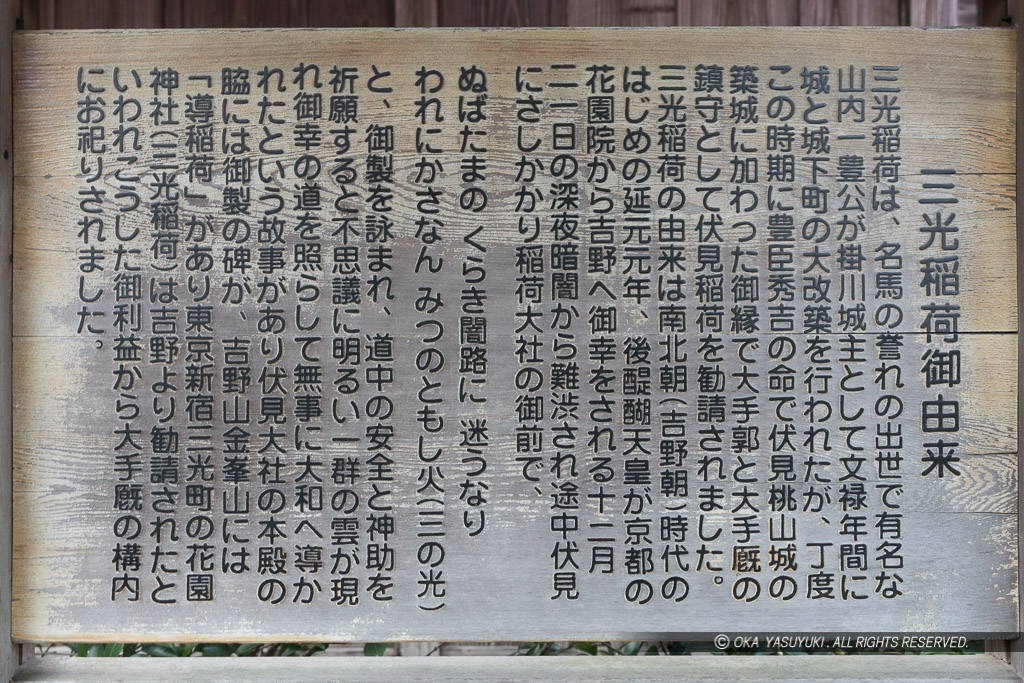 三光稲荷御由来
三光稲荷は、名馬の誉れの出世で有名な
山内一豊公が掛川城主として文禄年間に
城と城下町の大改築を行われたが、丁度
この時期に豊臣秀吉の命で伏見桃山城の
築城に加わった御縁で大手郭と大手厩の
鎮守として伏見稲荷を勧請されました。
三光稲荷の由来は南北朝(吉野朝)時代の
はじめの延元元年、後醍醐天皇が京都の
花園院から吉野へ御幸をされる十二月
二一日の深夜暗闇から難渋され途中伏見
にさしかかり稲荷大社の御前で、
ぬばたまの くらき闇路に 迷うなり
われにかさなん みつのともし火(三の光)
と、御製を詠まれ、道中の安全と神助を
祈願すると不思議に明るい一群の雲が現
れ御幸の道を照らして無事に大和へ導か
れたという故事があり伏見大社の本殿の
脇には御製の碑が、吉野山金峯山には
「導稲荷」があり東京新宿三光町の花園
神社(三光稲荷)は吉野より勧請されたと
いわれこうした御利益から大手厩の構内
にお祀りされました。
© OKA YASUYUKI. ALL RIGHTS RESERVED.